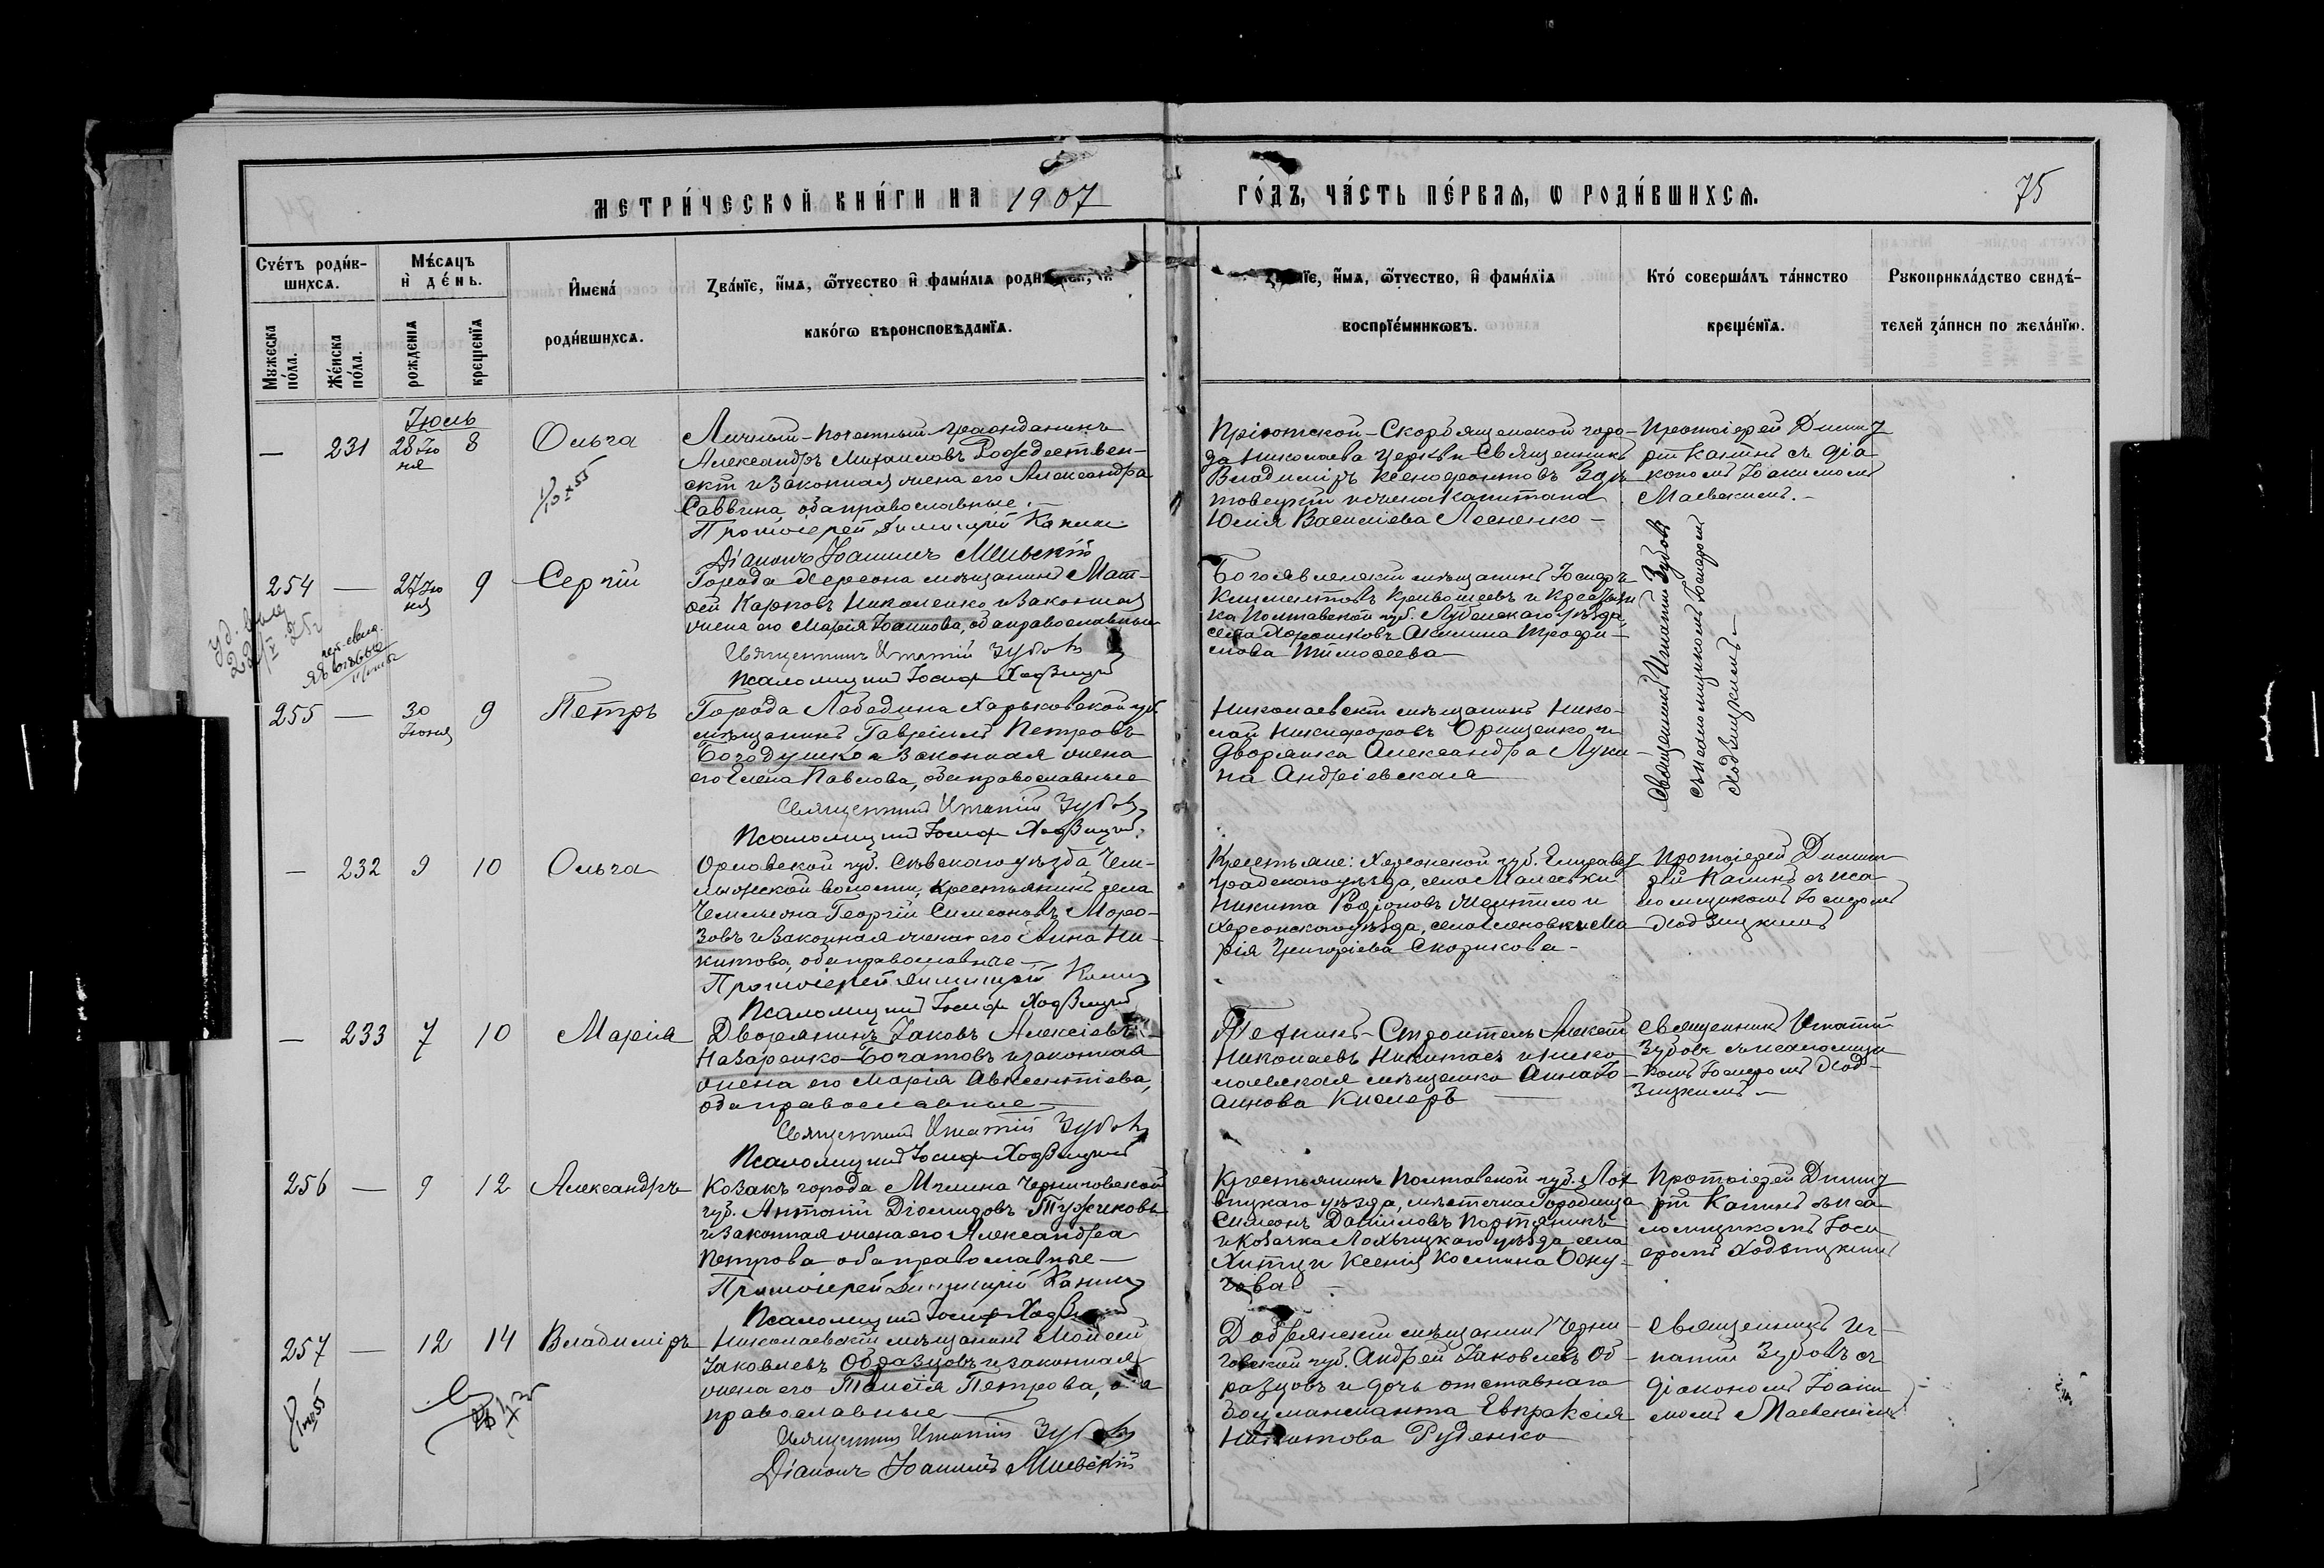 МЕТРИ́ЧЕСКОЙ КНИ́ГИ НА 1907
ГО́ДЪ, ЧА́СТЬ ПЕ́РВАѦ, Ѡ РОДИ́ВШИХСѦ.
75
Счетъ роди́в-
шихсѧ.
Мѣ́сѧцъ
и҆ де́нь.
Мꙋжеска
по́ла.
Же́нска
по́ла.
рожденіѧ
крещенїѧ
И҆мена́
роди́вшихсѧ.
Ꙁва́нїе, и҆́мѧ, ѻ҆́тчество и҆ фамі́лїѧ
како́гѡ вѣроисповѣ́данїѧ.
и҆́мѧ, ѻ҆́тчество, и҆ фамі́лїѧ
воспрїе́мникѡвъ.
Кто́ соверша́лъ та́инство
креще́нїѧ.
Рꙋкоприкла́дство свидѣ́-
телей за́писи по жела́нїю.
Іюль
— 231 28 Ію
ня 8 Ольга
Личный-почетный гражданинъ
Александръ Михаиловъ Рождествен-
скій и законная жена его Александра
Саввина, оба православные. —
Протоіерей Димитрій Канин
Діаконъ Іоакимъ Маевскій
Пріютской-Скорбященской горо-
да Николаева церкви Священникъ
Владиміръ Ксенофонтовъ
и жена капитана
Юлія Василіева Лесненко —
Протоіерей Димит
рій Канинъ съ діа-
кономъ Іоакимомъ
Маевскимъ. —
254 — 27 Ію
ня 9 Сергій
Города Херсона мѣщанинъ Мат-
ѳей Карповъ Николенко и законная
жена его Марія Іоаннова, оба православные
Священникъ Игнатій Зубовъ
Псаломщикъ Іосифъ Ходзицкій
Богоявленскій мѣщанинъ Іосифъ
Климентовъ Кривошеевъ и крестьян
ка Полтавской губ. Лубенскаго уѣзда,
села Хорошковъ Акилина Трофи-
мова Тимоѳеева —
Священникъ Игнатій Зубовъ
съ псаломщикомъ Іосифомъ
Ходзицкимъ —
255 — 30
Іюня 9 Петръ
Города Лебедина Харьковской губ.
мѣщанинъ Гавріилъ Петровъ
Богодушко и законная жена
его Елена Павлова, оба православные
Священникъ Игнатій Зубовъ
Псаломщикъ Іосифъ Ходзицкій.
Николаевскій мѣщанинъ Нико-
лай Никифоровъ Орищенко и
дворянка Александра Луки-
на Андріевская
— 232 9 10 Ольга
Орловской губ. Сѣвскаго уѣзда, Чем-
лыжской волости, крестьянинъ села
Георгій Симеоновъ Моро-
зовъ и законная жена его Анна Ни-
китова, оба православные —
Протоіерей Димитрій Канин
Псаломщикъ Іосифъ Ходзицкій
Крестьяне: Херсонской губ. Елисавет
градскаго уѣзда, села
Никита Родіоновъ и
Херсонскаго уѣзда, села Ма
рія Григоріева Скорикова —
Протоіерей Димит
рій Канинъ съ пса
ломщикомъ Іосифомъ
Ходзицкимъ
— 233 7 10 Марія
Дворянинъ Іаковъ Алексіевъ
Назаренко-Богатовъ и законная
жена его Марія Авксентіева,
оба православные —
Священникъ Игнатій Зубовъ
Псаломщикъ Іосифъ Ходзицкій
Техникъ-Строитель Алексѣй
Николаевъ Никитасъ и Нико-
лаевская мѣщанка Анна Іо-
аннова Кислеръ —
Священникъ Игнатій
Зубовъ съ псаломщи
комъ Іосифомъ Ход-
зицкимъ —
256 — 9 12 Александръ
Козакъ города Мглина Черниговской
губ. Антоній Діомидовъ Тужиковъ
и законная жена его Александра
Петрова оба православные —
Протоіерей Димитрій Канин
Псаломщикъ Іосифъ Ходзицкій
Крестьянинъ Полтавской губ. Лох
вицкаго уѣзда, мѣстечка Городища
Симеонъ Даніиловъ Портянникъ
и козачка Лохвицкаго уѣзда села
Хитцы Ксенія Космина
Протоіерей Димит
рій Канинъ съ пса-
ломщикомъ Іоси
фомъ Ходзицкимъ
257 — 12 14 Владиміръ
Николаевскій мѣщанинъ Мойсей
Іаковлевъ Образцовъ и законная
жена его Таисія Петрова, оба
православные —
Священникъ Игнатій Зубовъ
Діаконъ Іоакимъ Маевскій
Добрянскій мѣщанинъ Черни-
говской губ. Андрей Іаковлевъ Об-
разцовъ и дочь отставного
боцманмата Евпраксія
Никитова Руденко
Священникъ Иг-
натій Зубовъ съ
діакономъ Іоаки
момъ Маевскимъ